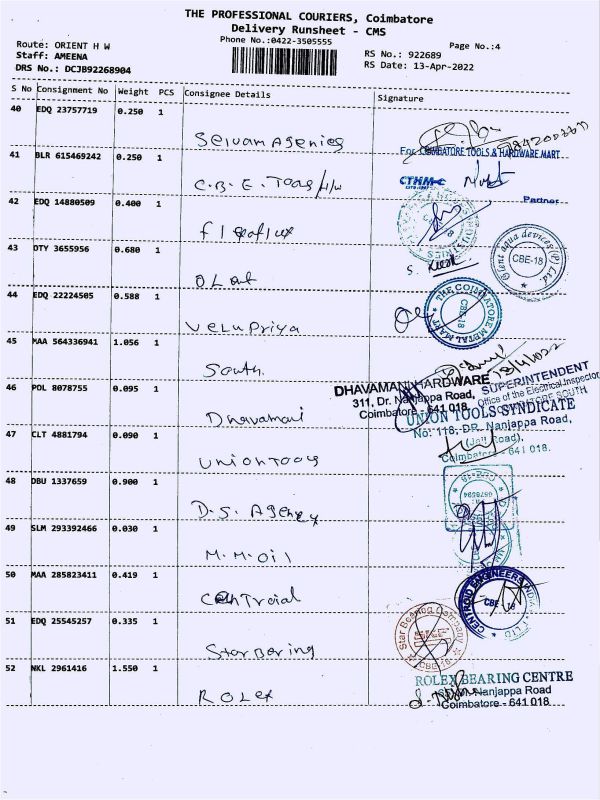 THE PROFESSIONAL COURIERS, Coimbatore
Delivery Runsheet - CMS
Phone No.:0422-3505555
Page No.:4
Route: ORIENT H W
Staff: AMEENA
DRS No.: DCJB92268904
RS No.: 922689
RS Date: 13-Apr-2022
S No Consignment No Weight PCS Consignee Details Signature
40 EDQ 23757719 0.250 1
Selvam Agenies
For COIMBATORE TOOLS & HARDWARE MART
41 BLR 615469242 0.250 1
C.B.E. Tools H/W
CTHM-C
Partner
42 EDQ 14880509 0.400 1
Flexaflux
43 DTY 3655956 0.680 1
S.
Orient aqua devices (P) Ltd
CBE-18
44 EDQ 22224505 0.588 1
Velupriya
THE COIMBATORE METAL MART
CBE-18
45 MAA 564336941 1.056 1
South.
13/4/2022
SUPERINTENDENT
Office of the Electrical Inspector
COIMBATORE SOUTH
46 POL 8078755 0.095 1
Dhavamani
DHAVAMANI HARDWARE
311, Dr. Nanjappa Road,
Coimbatore - 641 018.
47 CLT 4881794 0.090 1
Uniontools
UNION TOOLS SYNDICATE
No: 118, DR. Nanjappa Road,
(Jail Road),
Coimbatore - 641 018.
48 DBU 1337659 0.900 1
D.S. Agency
49 SLM 293392466 0.030 1
M.M.Oil
50 MAA 285823411 0.419 1
CENTROID ENGINEERS
CBE-18
51 EDQ 25545257 0.335 1
Star Bering
Star Bearing Company
CBE-18
52 NKL 2961416 1.550 1
Rolex
ROLEX BEARING CENTRE
Nanjappa Road
Coimbatore - 641 018.